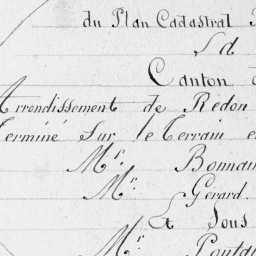 du Plan Cadastral
Canton
Arrondissement de Redon
Terminé Sur le Terrain
Mr.
Mr. Gérard.
Et Sous
Mr.